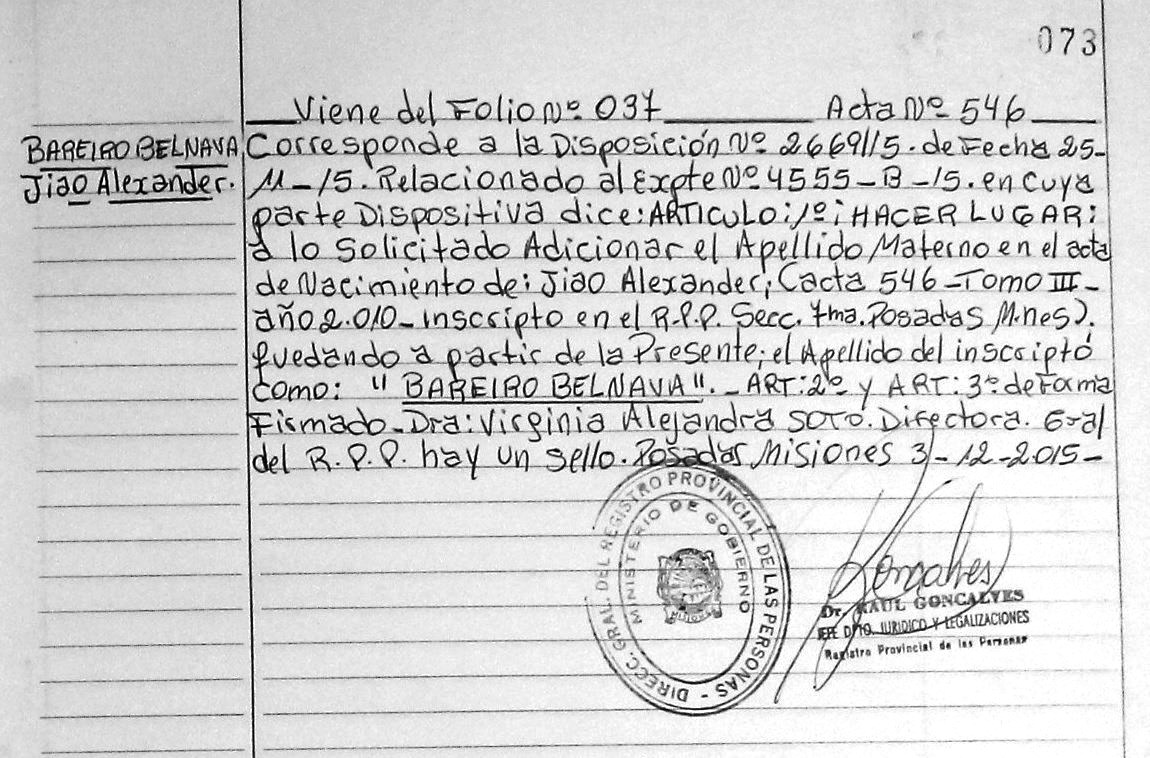 073
Viene del Folio Nº 037 Acta Nº 546
BAREIRO BELNAVA
Jiao Alexander.
Corresponde a la Disposición Nº 2669/15. de Fecha 25-
11-15. Relacionado al Expte Nº 4555-B-15. en cuya
parte Dispositiva dice: ARTICULO: 1º: HACER LUGAR:
a lo Solicitado Adicionar el Apellido Materno en el acta
de Nacimiento de: Jiao Alexander; (acta 546 - Tomo III -
año 2.010 - inscripto en el R.P.P. Secc. 7ma. Posadas M.nes).
Quedando a partir de la Presente; el Apellido del inscripto
como: "BAREIRO BELNAVA". - ART: 2º y ART: 3º de Forma
Firmado - Dra: Virginia Alejandra SOTO. Directora. Gral
del R.P.P. hay un sello. Posadas Misiones 3-12-2015-
DIRECC. GRAL. DEL REGISTRO PROVINCIAL DE LAS PERSONAS -
MINISTERIO DE GOBIERNO
MISIONES
Goncalves
Dr. RAUL GONCALVES
JEFE DPTO. JURIDICO Y LEGALIZACIONES
Registro Provincial de las Personas